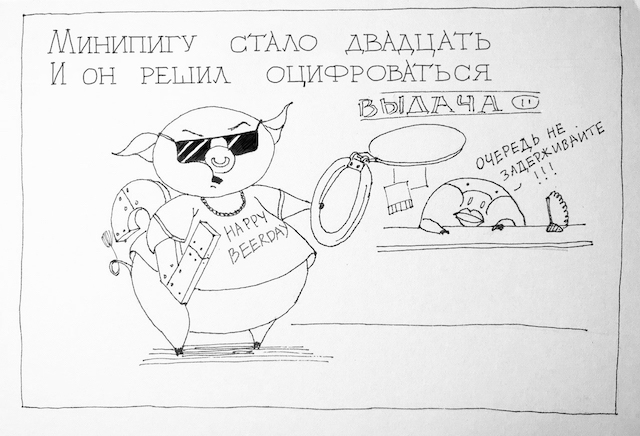 Минипигу стало двадцать
И он решил оцифроваться
ВЫДАЧА
ОЧЕРЕДЬ НЕ
ЗАДЕРЖИВАЙТЕ
!!!
HAPPY
BEERDAY